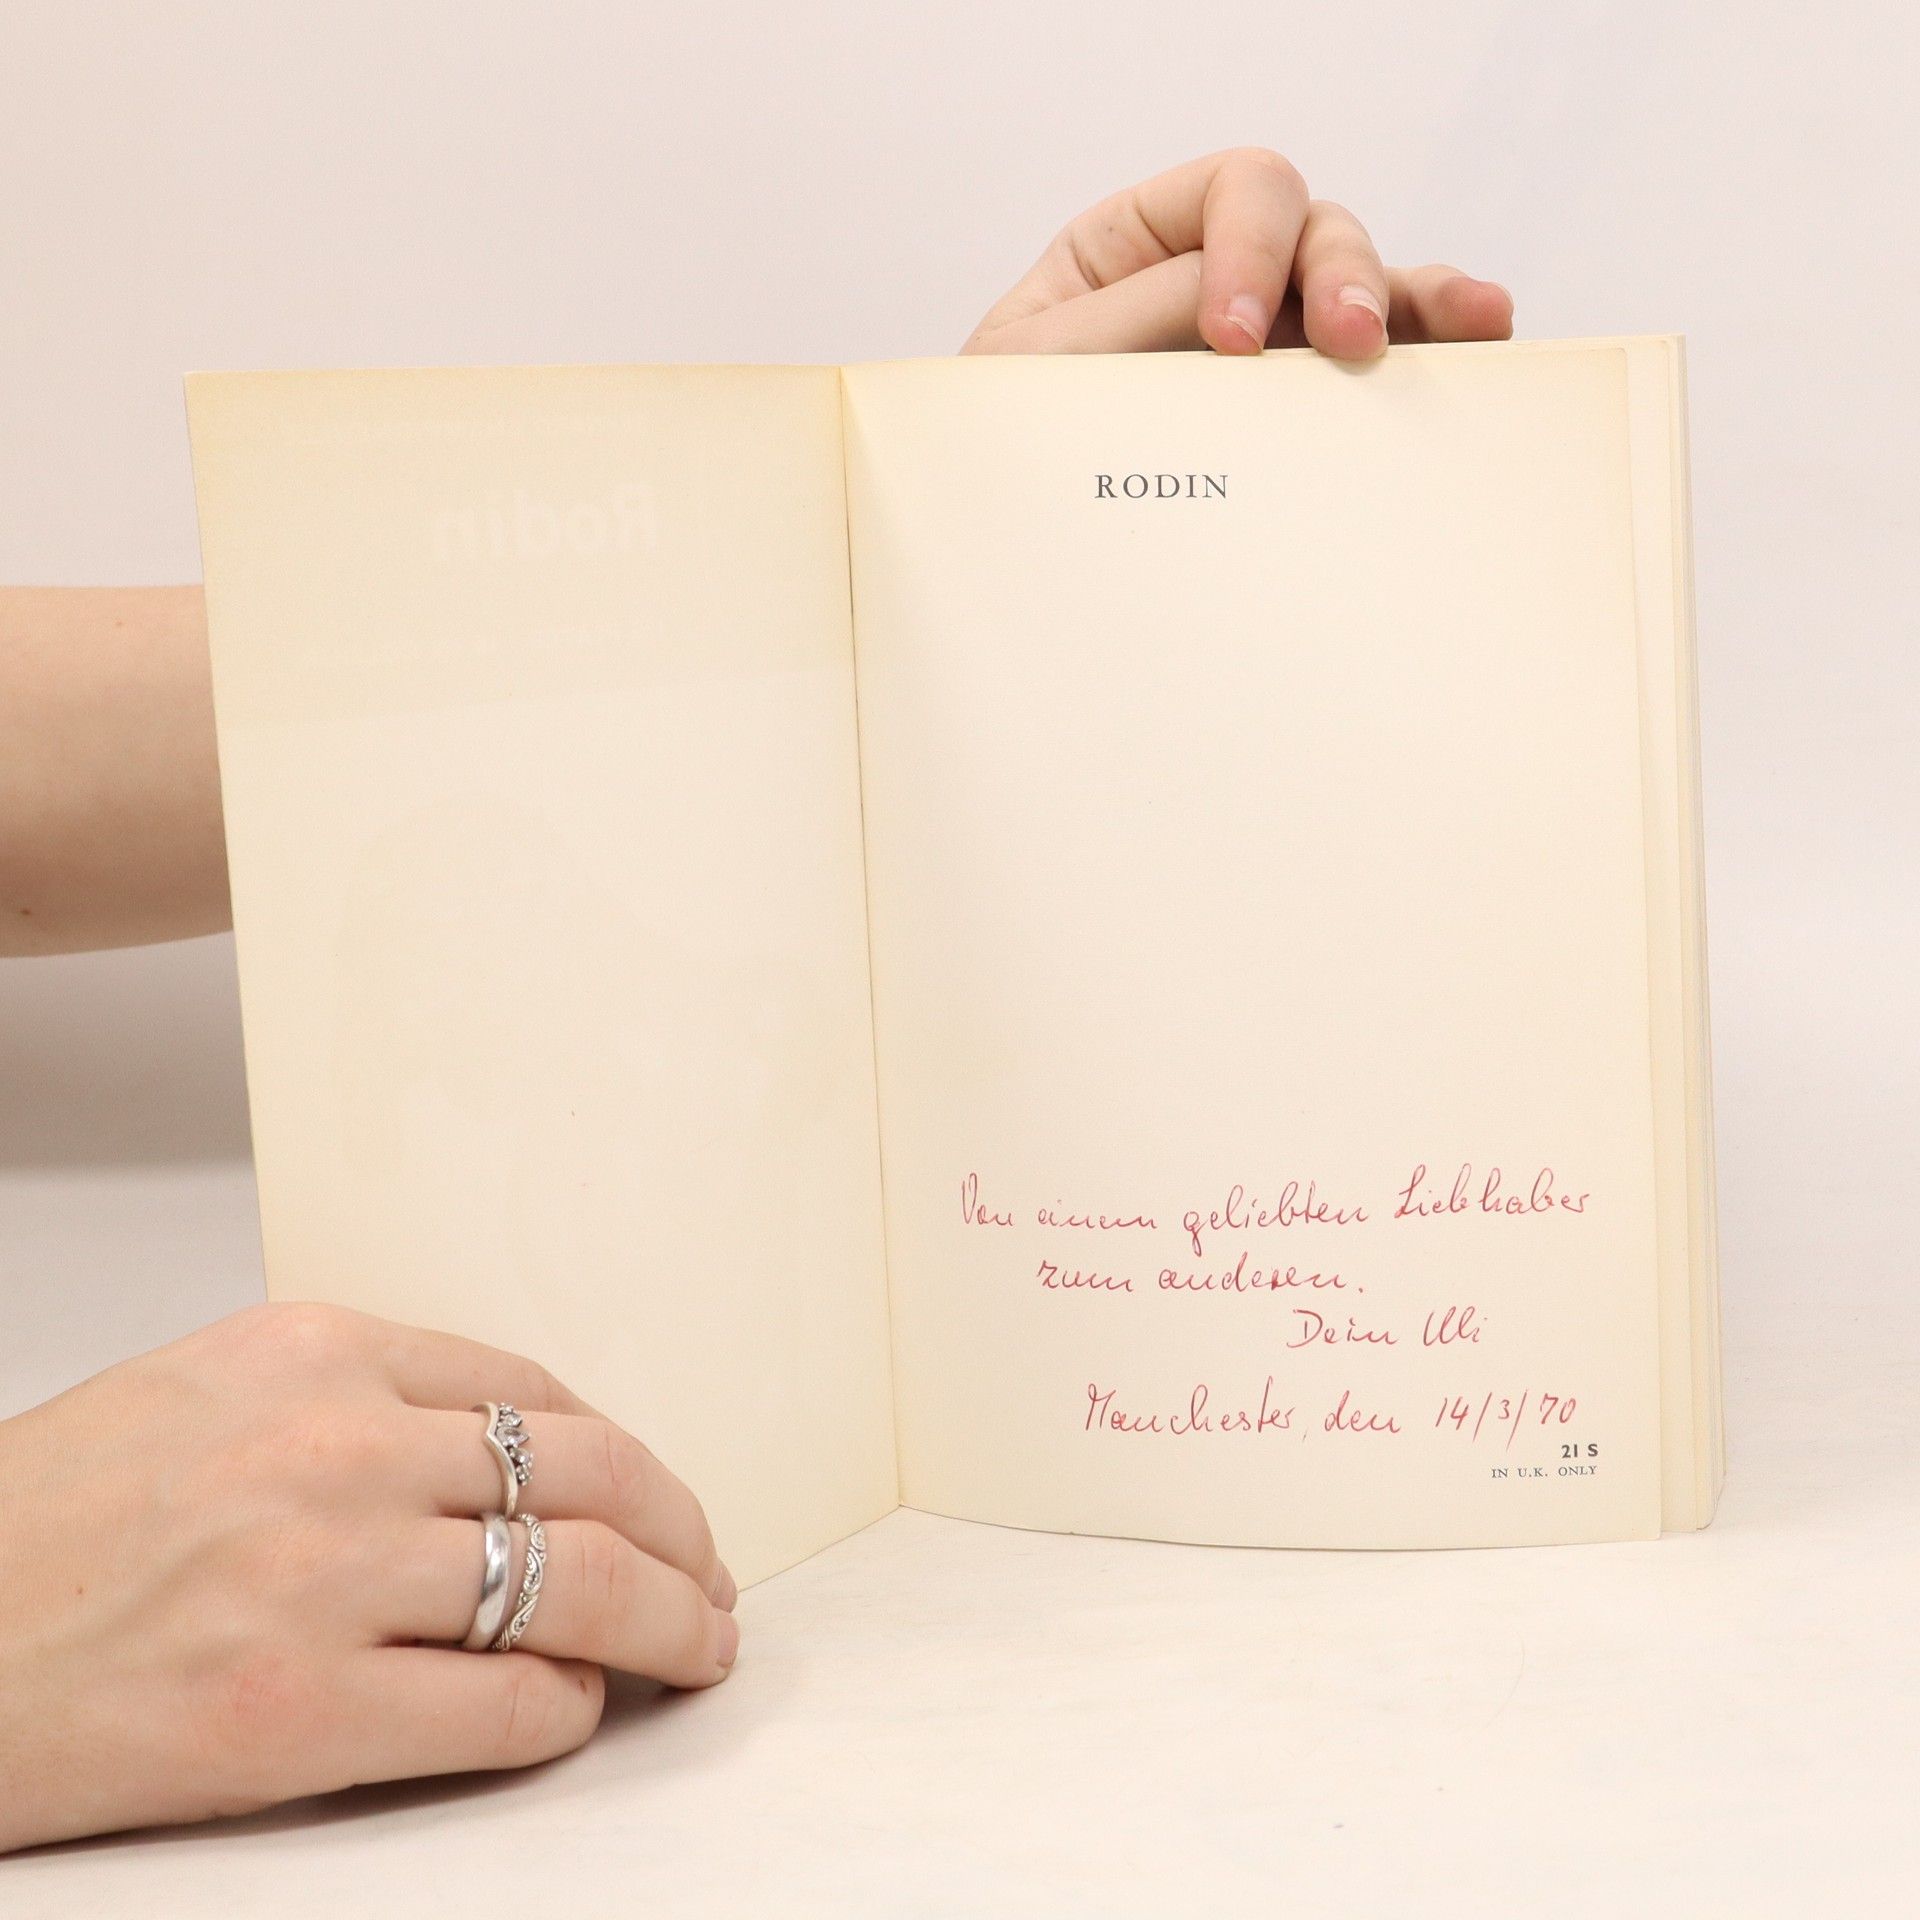 Rodin
RODIN
Von einem geliebten Liebhaber
zum anderen.
Dein Uli
Manchester, den 14/3/70
21 S
IN U.K. ONLY